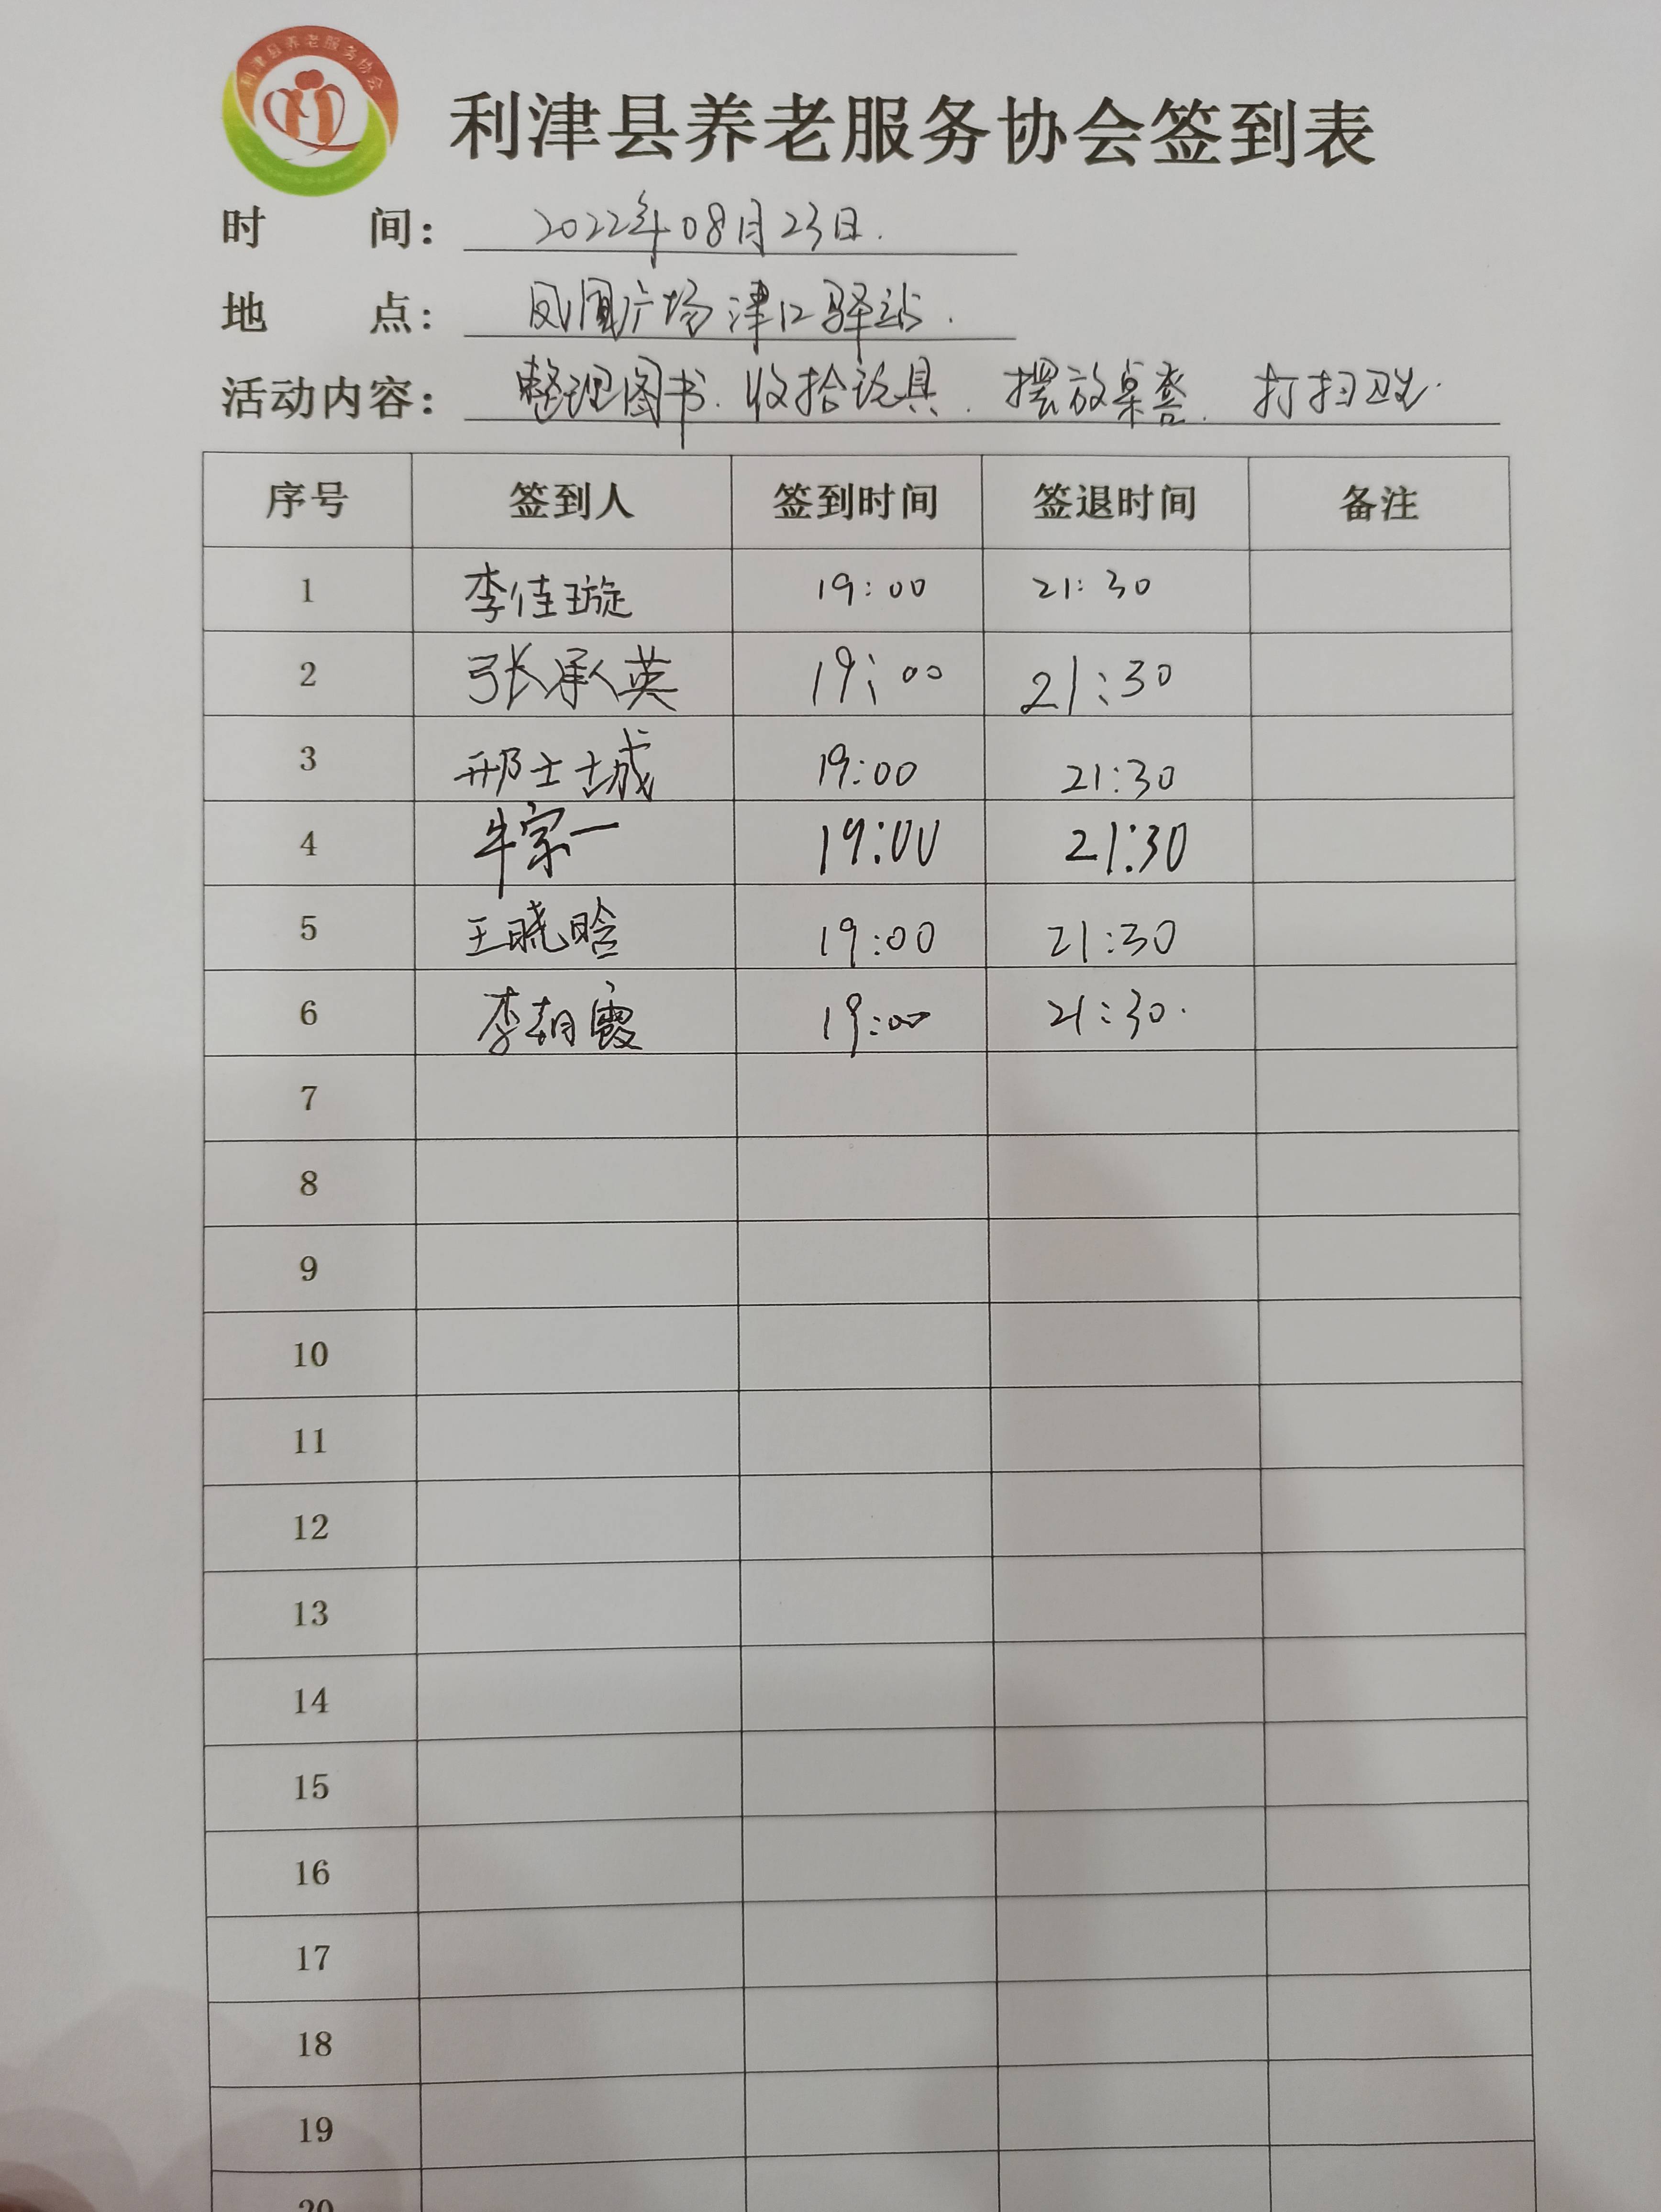 利津县养老服务协会
利津县养老服务协会签到表
时 间： 2022年08月23日.
地 点： 凤凰广场津口驿站.
活动内容： 整理图书.收拾玩具.摆放桌凳.打扫卫生.
序号 签到人 签到时间 签退时间 备注
1 李佳璇 19:00 21:30
2 张承英 19:00 21:30
3 邢士城 19:00 21:30
4 牛宗一 19:00 21:30
5 王晓晗 19:00 21:30
6 李朝霞 19:00 21:30.
7
8
9
10
11
12
13
14
15
16
17
18
19
20